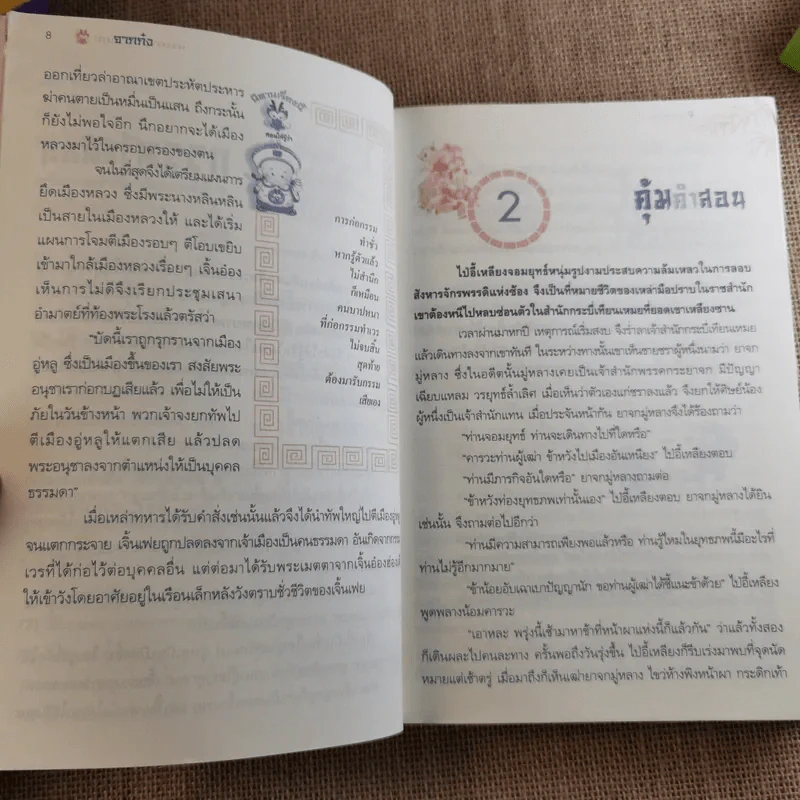 8
อาตทิ้ง
ออกเที่ยวล่าอาณาเขตประหัตประหาร
ฆ่าคนตายเป็นหมื่นเป็นแสน ถึงกระนั้น
ก็ยังไม่พอใจอีก นึกอยากจะได้เมือง
หลวงมาไว้ในครอบครองของตน
จนในที่สุดจึงได้เตรียมแผนการ
ยึดเมืองหลวง ซึ่งมีพระนางหลินหลิน
เป็นสายในเมืองหลวงให้ และได้เริ่ม
แผนการโจมตีเมืองรอบๆ ตีโอบเขยิบ
เข้ามาใกล้เมืองหลวงเรื่อยๆ เจิ้นอ๋อง
เห็นการไม่ดีจึงเรียกประชุมเสนา
อำมาตย์ที่ท้องพระโรงแล้วตรัสว่า
"บัดนี้เราถูกรุกรานจากเมือง
อู่หลู ซึ่งเป็นเมืองขึ้นของเรา สงสัยพระ
อนุชาเราก่อกบฏเสียแล้ว เพื่อไม่ให้เป็น
ภัยในวันข้างหน้า พวกเจ้าจงยกทัพไป
ตีเมืองอู่หลูให้แตกเสีย แล้วปลด
พระอนุชาลงจากตำแหน่งให้เป็นบุคคล
ธรรมดา"
เมื่อเหล่าทหารได้รับคำสั่งเช่นนั้นแล้วจึงได้นำทัพใหญ่ไปตีเมืองอู่หลู
จนแตกกระจาย เจิ้นเฟยถูกปลดลงจากเจ้าเมืองเป็นคนธรรมดา อันเกิดจากกรรม
เวรที่ได้ก่อไว้ต่อบุคคลอื่น แต่ต่อมาได้รับพระเมตตาจากเจิ้นอ๋องฮ่องเต้
ให้เข้าวังโดยอาศัยอยู่ในเรือนเล็กหลังวังตราบชั่วชีวิตของเจิ้นเฟย
นิทานเรื่องนี้
สอนให้รู้ว่า
การก่อกรรม
ทำชั่ว
หากรู้ตัวแล้ว
ไม่สำนึก
ก็เหมือน
คนบาปหนา
ที่ก่อกรรมทำเวร
ไม่จบสิ้น
สุดท้าย
ต้องมารับกรรม
เสียเอง
2
คุ้มคำสอน
ไป๋อี้เหลียงจอมยุทธ์หนุ่มรูปงามประสบความล้มเหลวในการลอบ
สังหารจักรพรรดิแห่งซ้อง จึงเป็นที่หมายชีวิตของเหล่ามือปราบในราชสำนัก
เขาต้องหนีไปหลบซ่อนตัวในสำนักกระบี่เทียนเหมยที่ยอดเขาเหลียงซาน
เวลาผ่านมาหกปี เหตุการณ์เริ่มสงบ จึงร่ำลาเจ้าสำนักกระบี่เทียนเหมย
แล้วเดินทางลงจากเขาทันที ในระหว่างทางนั้นเขาเห็นชายชราผู้หนึ่งนามว่า ยาจก
มู่หลาง ซึ่งในอดีตนั้นมู่หลางเคยเป็นเจ้าสำนักพรรคกระยาจก มีปัญญา
เฉียบแหลม วรยุทธ์ล้ำเลิศ เมื่อเห็นว่าตัวเองแก่ชราลงแล้ว จึงยกให้ศิษย์น้อง
ผู้หนึ่งเป็นเจ้าสำนักแทน เมื่อประจันหน้ากัน ยาจกมู่หลางจึงได้ร้องถามว่า
"ท่านจอมยุทธ์ ท่านจะเดินทางไปที่ใดหรือ"
"คารวะท่านผู้เฒ่า ข้าหวังไปเมืองอันเหนียง" ไป๋อี้เหลียงตอบ
"ท่านมีภารกิจอันใดหรือ" ยาจกมู่หลางถามต่อ
"ข้าหวังท่องยุทธภพเท่านั้นเอง" ไป๋อี้เหลียงตอบ ยาจกมู่หลางได้ยิน
เช่นนั้น จึงถามต่อไปอีกว่า
"ท่านมีความสามารถเพียงพอแล้วหรือ ท่านรู้ไหมในยุทธภพนี้มีอะไรที่
ท่านไม่รู้อีกมากมาย"
"ข้าน้อยอับเฉาเบาปัญญานัก ขอท่านผู้เฒ่าได้ชี้แนะข้าด้วย" ไป๋อี้เหลียง
พูดพลางน้อมคารวะ
"เอาหละ พรุ่งนี้เช้ามาหาข้าที่หน้าผาแห่งนี้ก็แล้วกัน" ว่าแล้วทั้งสอง
ก็เดินผละไปคนละทาง ครั้นพอถึงวันรุ่งขึ้น ไป๋อี้เหลียงก็รีบเร่งมาพบที่จุดนัด
หมายแต่เช้าตรู่ เมื่อมาถึงก็เห็นเฒ่ายาจกมู่หลาง ไขว่ห้างพิงหน้าผา กระดิกเท้า